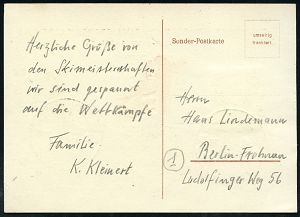 Herzliche Grüße von
den Skimeisterschaften
wir sind gespannt
auf die Wettkämpfe
Familie
K. Kleinert
Sonder-Postkarte
Herrn
Hans Lindemann
1
Berlin-Frohnau
Ludolfinger Weg 56